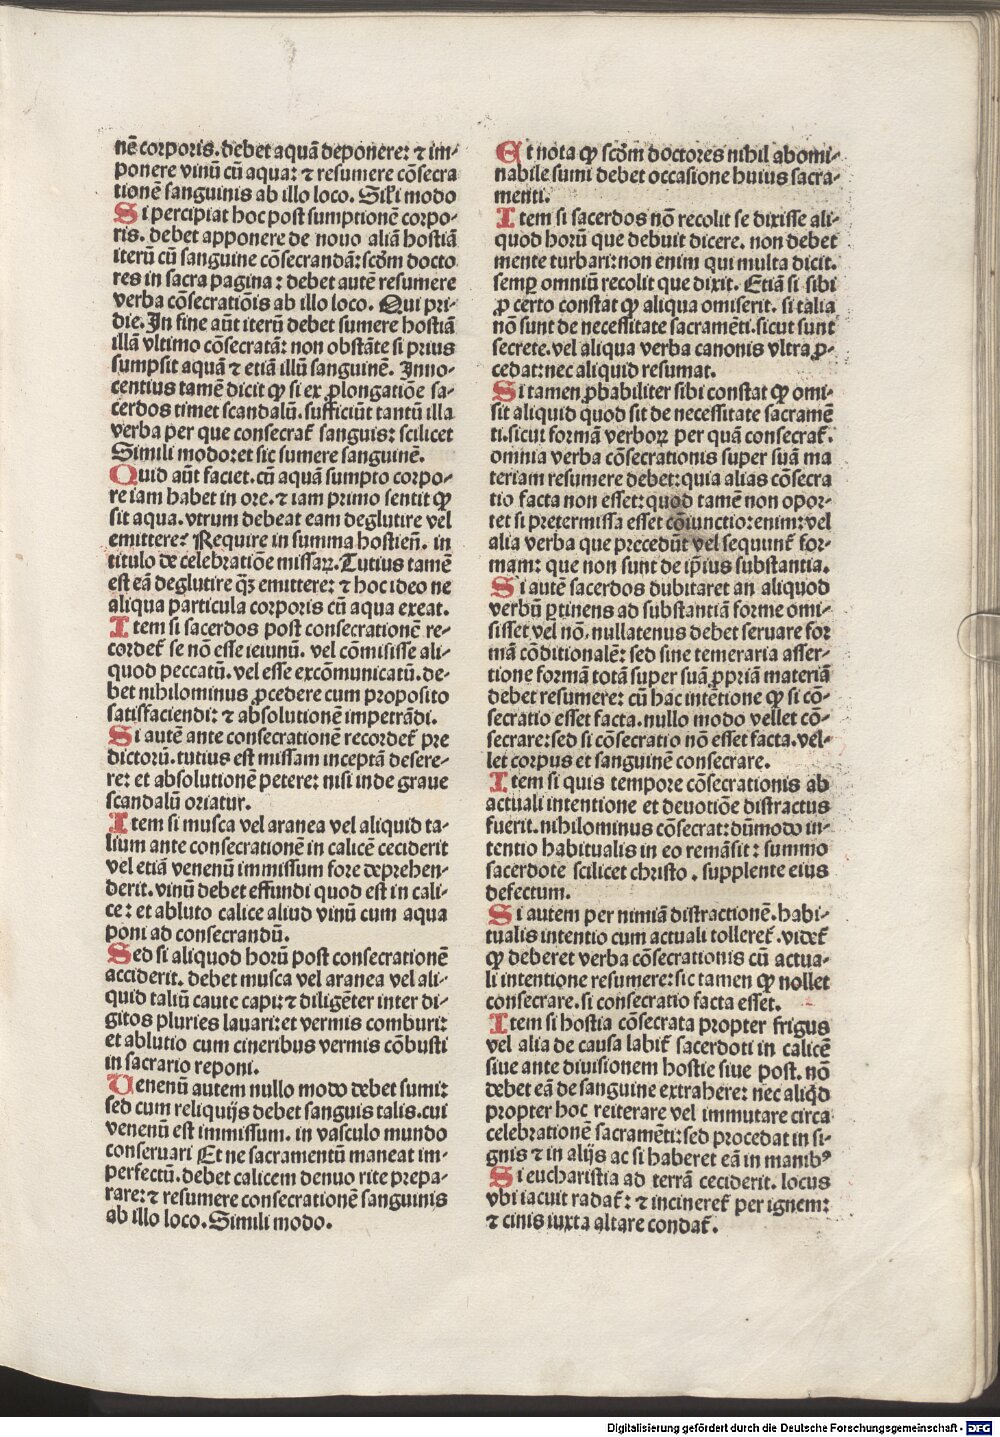 nē corporis. debet aquā deponere: ⁊ im-
ponere vinū cū aqua: ⁊ resumere cōsecra
tionē sanguinis ab illo loco. Siłi modo
Si percipiat hoc post sumptionē corpo-
ris. debet apponere de nouo aliā hostiā
iterū cū sanguine cōsecrandā: scd̄m docto
res in sacra pagina: debet autē resumere
verba cōsecratiōis ab illo loco. Qui pri-
die. In fine aūt iterū debet sumere hostiā
illā vltimo cōsecratā: non obstāte si prius
sumpsit aquā ⁊ etiā illū sanguinē. Inno-
centius tamē dicit ꝙ si ex ꝓlongatiōe sa-
cerdos timet scandalū. sufficiūt tantū illa
verba per que consecrat᷑ sanguis: scilicet
Simili modo: et sic sumere sanguinē.
Quid aūt faciet. cū aquā sumpto corpo-
re iam habet in ore. ⁊ iam primo sentit ꝙ
sit aqua. vtrum debeat eam deglutire vel
emittere? Require in summa hostien̄. in
titulo de celebratiōe missaꝝ. Tutius tamē
est eā deglutire q̄ꝫ emittere: ⁊ hoc ideo ne
aliqua particula corporis cū aqua exeat.
Item si sacerdos post consecrationē re-
cordet᷑ se nō esse ieiunū. vel cōmisisse ali-
quod peccatū. vel esse excōmunicatū. de-
bet nihilominus ꝓcedere cum proposito
satisfaciendi: ⁊ absolutionē impetrādi.
Si autē ante consecrationē recordet᷑ pre
dictorū. tutius est missam inceptā desere-
re: et absolutionē petere: nisi inde graue
scandalū oriatur.
Item si musca vel aranea vel aliquid ta-
lium ante consecrationē in calicē ceciderit
vel etiā venenū immissum fore deprehen-
derit. vinū debet effundi quod est in cali-
ce: et abluto calice aliud vinū cum aqua
poni ad consecrandū.
Sed si aliquod horū post consecrationē
acciderit. debet musca vel aranea vel ali-
quid taliū caute capi: ⁊ diligēter inter di-
gitos pluries lauari: et vermis comburi:
et ablutio cum cineribus vermis cōbusti
in sacrario reponi.
Venenū autem nullo modo debet sumi:
sed cum reliquijs debet sanguis talis. cui
venenū est immissum. in vasculo mundo
conseruari Et ne sacramentū maneat im-
perfectū. debet calicem denuo rite prepa-
rare: ⁊ resumere consecrationē sanguinis
ab illo loco. Simili modo.
Et nota ꝙ scd̄m doctores nihil abomi-
nabile sumi debet occasione huius sacra-
menti.
Item si sacerdos nō recolit se dixisse ali-
quod horū que debuit dicere. non debet
mente turbari: non enim qui multa dicit.
semꝑ omniū recolit que dixit. Etiā si sibi
ꝓ certo constat ꝙ aliqua omiserit. si talia
nō sunt de necessitate sacramēti. sicut sunt
secrete. vel aliqua verba canonis vltra ꝓ-
cedat: nec aliquid resumat.
Si tamen ꝓbabiliter sibi constat ꝙ omi-
sit aliquid quod sit de necessitate sacramē
ti. sicut formā verboꝝ per quā consecrat᷑.
omnia verba cōsecrationis super suā ma
teriam resumere debet: quia alias cōsecra
tio facta non esset: quod tamē non opor-
tet si pretermissa esset cōiunctio: enim: vel
alia verba que precedūt vel sequunt᷑ for-
mam: que non sunt de ip̄ius substantia.
Si autē sacerdos dubitaret an aliquod
verbū ꝑtinens ad substantiā forme omi-
sisset vel nō. nullatenus debet seruare for
mā cōditionalē: sed sine temeraria asser-
tione formā totā super suā ꝓpriā materiā
debet resumere: cū hac intētione ꝙ si cō-
secratio esset facta. nullo modo vellet cō-
secrare: sed si cōsecratio nō esset facta. vel-
let corpus et sanguinē consecrare.
Item si quis tempore cōsecrationis ab
actuali intentione et deuotiōe distractus
fuerit. nihilominus cōsecrat: dūmodo in-
tentio habitualis in eo remāsit: summo
sacerdote scilicet christo. supplente eius
defectum.
Si autem per nimiā distractionē. habi-
tualis intentio cum actuali tolleret᷑. videt᷑
ꝙ deberet verba cōsecrationis cū actua-
li intentione resumere: sic tamen ꝙ nollet
consecrare. si consecratio facta esset.
Item si hostia cōsecrata propter frigus
vel alia de causa labit᷑ sacerdoti in calicē
siue ante diuisionem hostie siue post. nō
debet eā de sanguine extrahere: nec aliq̇d
propter hoc reiterare vel immutare circa
celebrationē sacramēti: sed procedat in si-
gnis ⁊ in alijs ac si haberet eā in manibꝰ
Si eucharistia ad terrā ceciderit. locus
vbi iacuit radat᷑: ⁊ incineret᷑ per ignem:
⁊ cinis iuxta altare condat᷑.
Digitalisierung gefördert durch die Deutsche Forschungsgemeinschaft - DFG